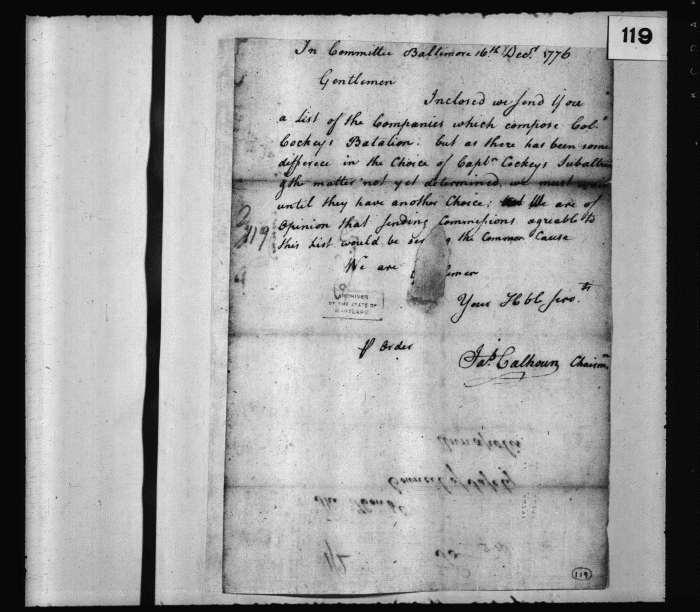 119
In Committee Baltimore 16th Decr 1776
Gentlemen
Inclosed we send You
a List of the Companies which compose Colo
Cockeys Batalion: but as there has been some
differece in the Choice of Captn Cockeys Subaltern
& the matter not yet determined, we must wait
until they have another Choice; We are of
Opinion that sending Commissions agreable to
this List would be the Common Cause
We are
Your Hble Servts
ARCHIVES
OF THE STATE OF
MARYLAND
119
P Order
Jas Calhoun Chairmn
Annapolis
Council of Safety
The Honble
To
119